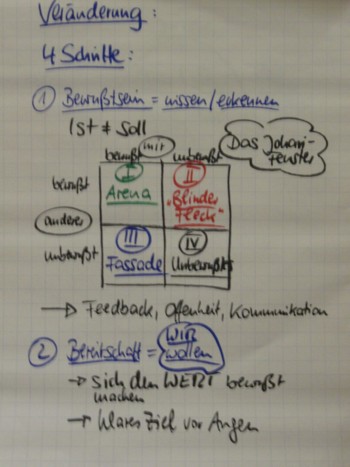 Veränderung:
4 Schritte:
① Bewußtsein = wissen/erkennen
Ist ≠ Soll
mir
bewußt unbewußt
Das Johari-
Fenster
bewußt
I
Arena
II
"Blinder
Fleck"
anderen
unbewußt
III
Fassade
IV
Unbewußtes
→ Feedback, Offenheit, Kommunikation
② Bereitschaft = WIR
wollen
→ sich den WERT bewußt
machen
→ klares Ziel vor Augen